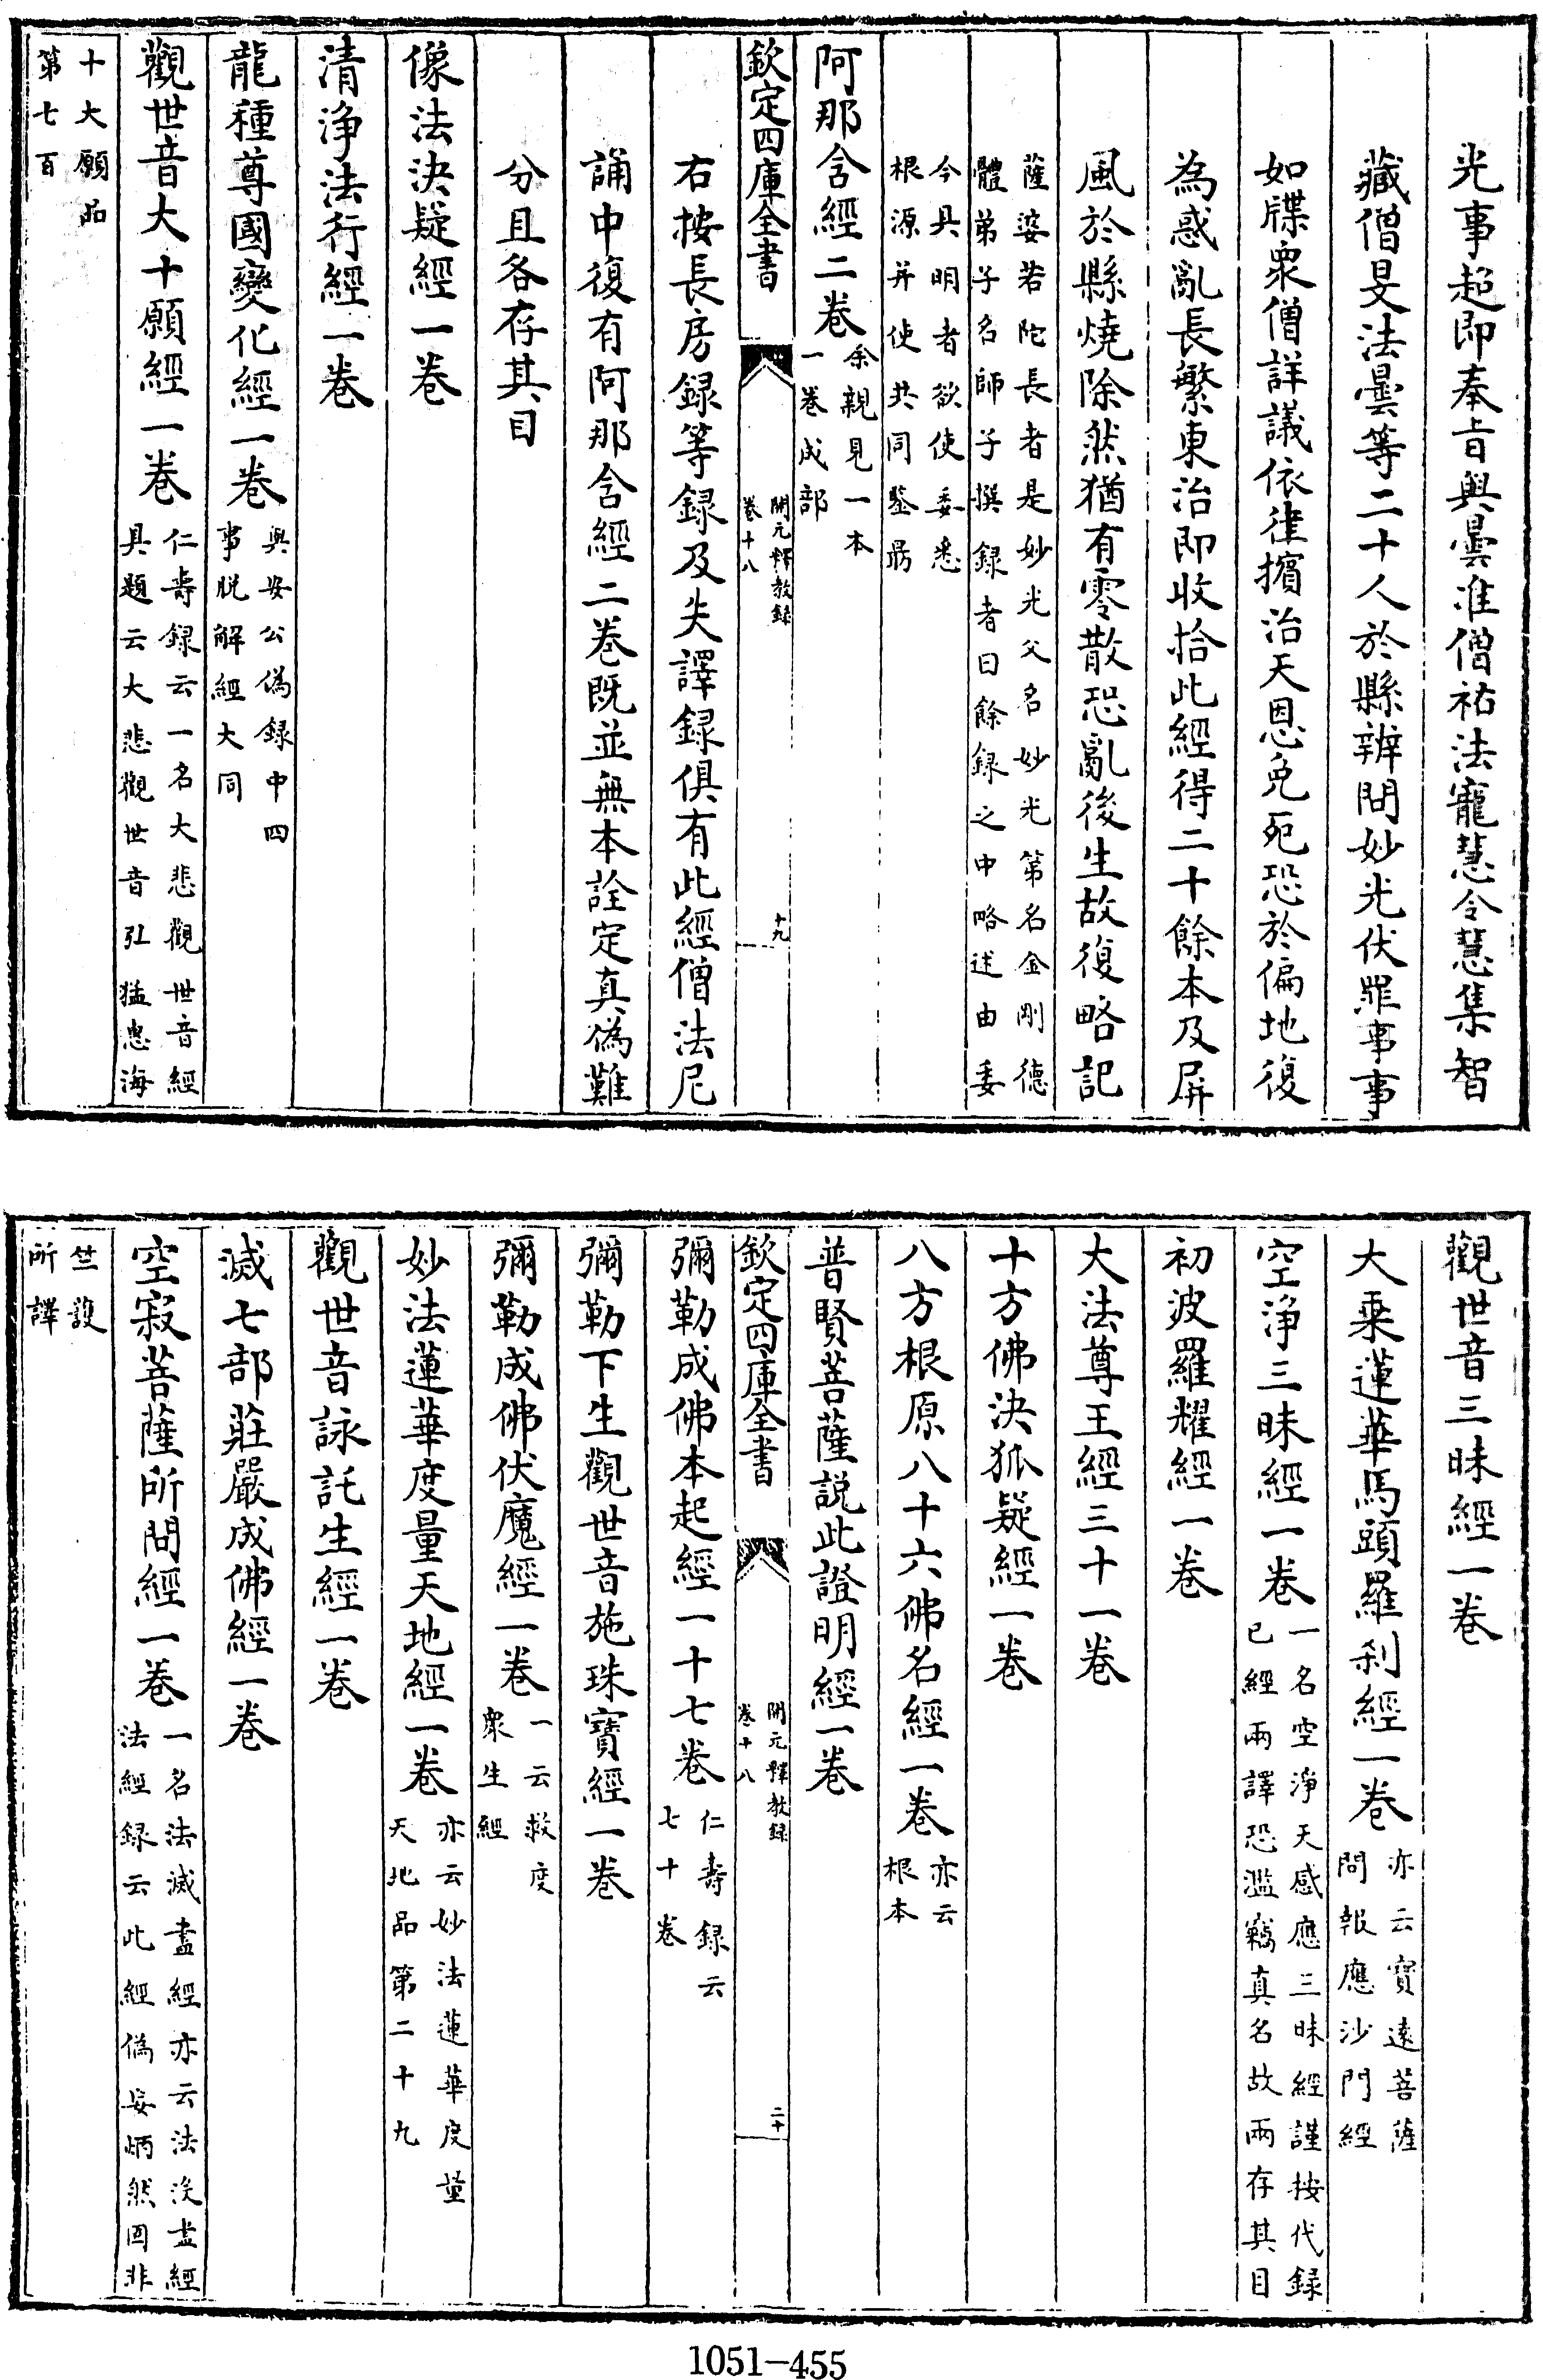 光事超即奉㫖與曇准僧祐法寵慧令慧集智
藏僧旻法曇等二十人於縣辨問妙光伏罪事事
如牒衆僧詳議依律擯治天恩免死恐於偏地復
為惑亂長繫東治即收拾此經得二十餘本及屏
風於縣燒除然猶有零散恐亂後生故復略記
薩婆若陀長者是妙光父名妙光第名金剛德
體弟子名師子撰録者曰餘録之中略述由委
今具明者欲使委悉
根源并使共同鑒勗
阿那含經二巻
余親見一本
一巻成部
欽定四庫全書
開元釋教録
卷十八
十九
右按長房録等録及失譯録俱有此經僧法尼
誦中復有阿那含經二巻既並無本詮定真偽難
分且各存其目
像法決疑經一巻
清浄法行經一巻
龍種尊國變化經一巻
與安公偽録中四
事脱解經大同
觀世音大十願經一巻
仁壽録云一名大悲觀世音經
具題云大悲觀世音弘猛慧海
十大願品
第七百
觀世音三昧經一巻
大乗蓮華馬頭羅刹經一巻
亦云寳達菩薩
問報應沙門經
空浄三昧經一巻
一名空淨天感應三昧經謹按代録
已經兩譯恐濫竊真名故兩存其目
初波羅耀經一巻
大法尊王經三十一巻
十方佛決狐疑經一巻
八方根原八十六佛名經一巻
亦云
根本
普賢菩薩說此證明經一巻
欽定四庫全書
開元釋教録
卷十八
二十
彌勒成佛本起經一十七巻
仁壽録云
七十巻
彌勒下生觀世音施珠寳經一巻
彌勒成佛伏魔經一巻
一云救度
衆生經
妙法蓮華度量天地經一巻
亦云妙法蓮華度量
天地品第二十九
觀世音詠託生經一巻
滅七部莊嚴成佛經一巻
空寂菩薩所問經一巻
一名法滅盡經亦云法没盡經
法經録云此經偽妄炳然固非
竺護
所譯
1051-455